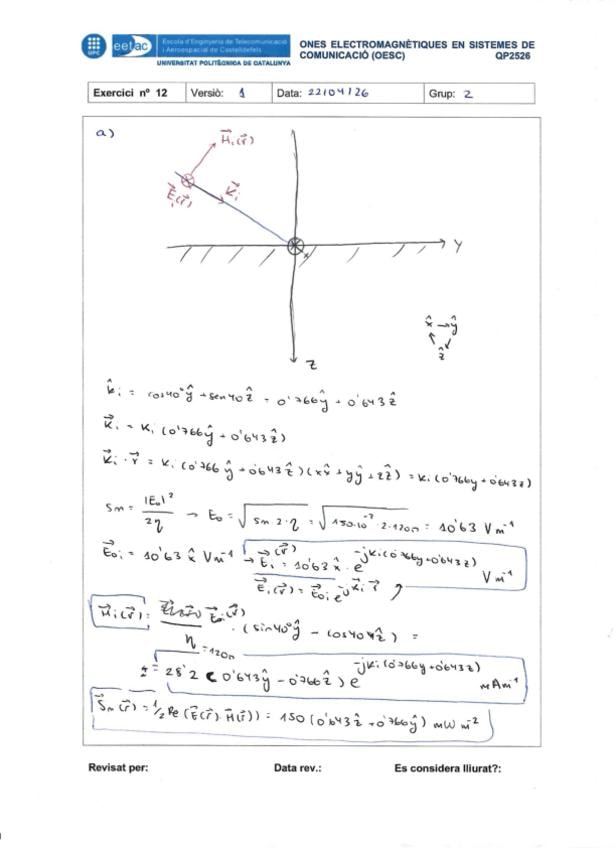 UPC eetac Escola d'Enginyeria de Telecomunicació
i Aeroespacial de Castelldefels
UNIVERSITAT POLITÈCNICA DE CATALUNYA
ONES ELECTROMAGNÈTIQUES EN SISTEMES DE
COMUNICACIÓ (OESC) QP2526
Exercici nº 12 Versió: 1 Data: 22/04/26 Grup: 2
a)
H⃗i(r⃗)
E⃗i(r⃗) K⃗i
x Y
x̂ → ŷ
ẑ
Z
k̂i = cos40°ŷ + sen40ẑ = 0'766ŷ + 0'643ẑ
K⃗i = Ki (0'766ŷ + 0'643ẑ)
K⃗i · r⃗ = Ki (0'766ŷ + 0'643ẑ)(xx̂ + yŷ + zẑ) = Ki (0'766y + 0'643z)
Sm = |E0|²/2η → E0 = √(Sm·2·η) = √(150·10⁻³·2·120π) = 10'63 Vm⁻¹
E⃗0i = 10'63 x̂ Vm⁻¹ → E⃗i(r⃗) = 10'63 x̂ · e^-jKi(0'766y+0'643z) Vm⁻¹
E⃗i(r⃗) = E⃗0i e^-jK⃗i·r⃗
H⃗i(r⃗) = E⃗0i(r⃗)/η · (sin40°ŷ - cos40°ẑ) =
η = 120π
= 28'2 (0'643ŷ - 0'766ẑ) e^-jKi(0'766y+0'643z) mAm⁻¹
S⃗m(r⃗) = 1/2 Re (E⃗(r⃗) · H⃗(r⃗)) = 150 (0'643ẑ + 0'766ŷ) mW m⁻²
Revisat per: Data rev.: Es considera lliurat?: